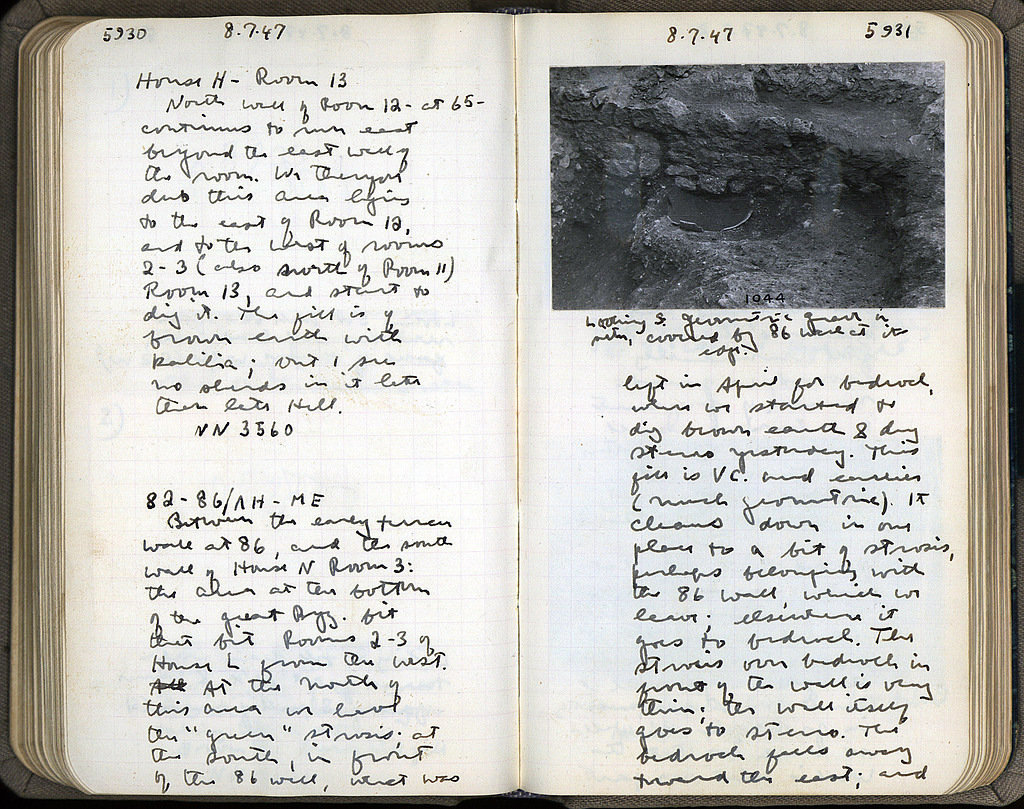 5930
8.7.47
House H - Room 13
North wall of Room 12 - at 65 -
continues to run east
beyond the east wall of
the room. We therefore
dub this area lying
to the east of Room 12,
and to the west of rooms
2-3 (also north of Room 11)
Room 13, and start to
dig it. The fill is of
brown earth with
; but I see
no sherds in it later
than late Hell.
NN 3560
82-86/ΛH - ME
Between the early terrace
wall at 86, and the south
wall of House N Room 3:
the area at the bottom
of the great Byz. pit
that bit Rooms 2-3 of
House L from the west.
At the north of
this area we have
the "green" strosis; at
the south, in front
of the 86 wall, what was
8.7.47
5931
1044
Looking S. Geometric grave in
situ, covered by 86 wall at its
edge.
left in April for bedrock,
when we started to
dig brown earth & dug
stereo yesterday. This
fill is VC. and earlier
(much geometric). It
cleans down in one
place to a bit of strosis,
perhaps belonging with
the 86 wall, which we
leave; elsewhere it
goes to bedrock. The
strosis over bedrock in
front of the wall is very
thin; the wall itself
goes to stereo. The
bedrock falls away
toward the east; and